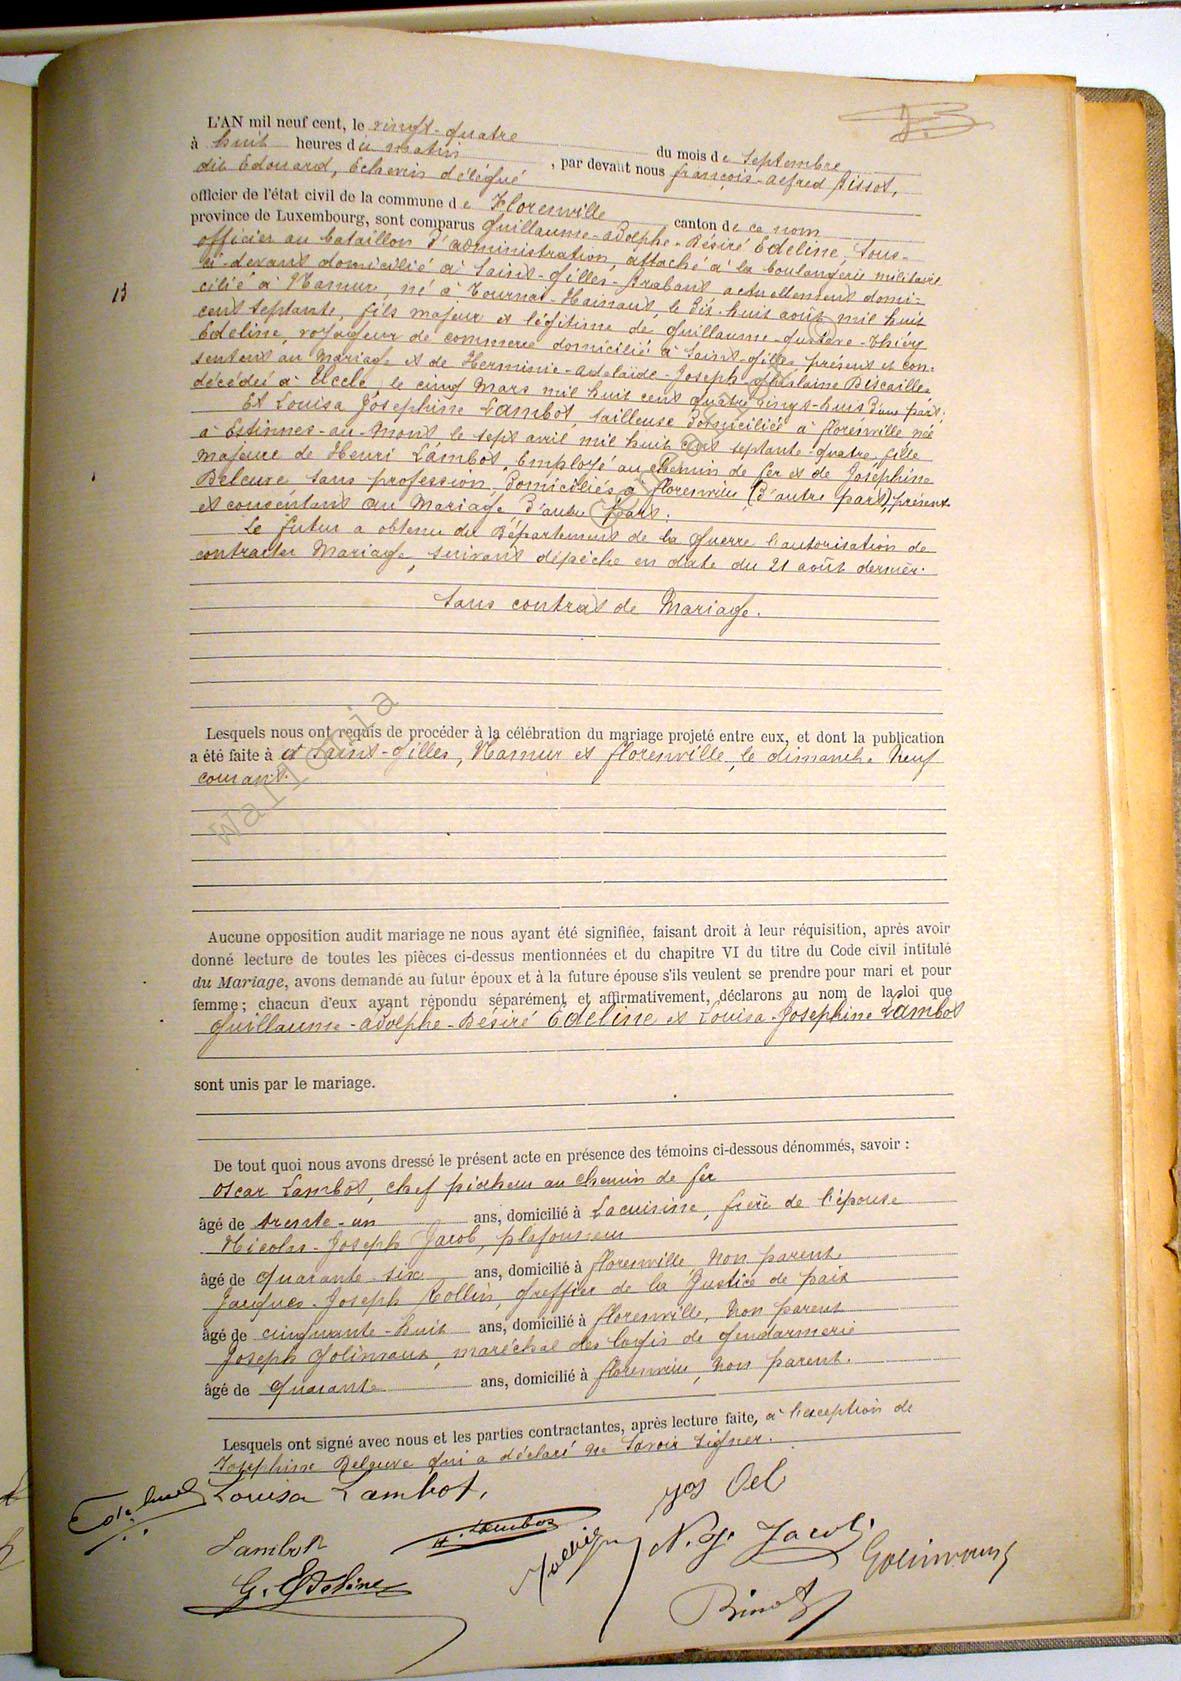 L'AN mil neuf cent, le vingt-quatre du mois de Septembre
à huit heures du matin, par devant nous François-Alfred Bissot,
dit Edouard, Echevin délégué
officier de l'état civil de la commune de Florenville canton de ce nom
province de Luxembourg, sont comparus Guillaume-Adolphe-Désiré Edeline, Sous-
officier au bataillon d'administration, attaché à la boulangerie militaire
ci-devant domicilié à Saint-Gilles-Brabant actuellement domi-
cilié à Namur, né à Tournai-Hainaut, le dix-huit août mil huit
cent septante, fils majeur et légitime de Guillaume-Gustave-Thiéry
Edeline, voyageur de commerce domicilié à Saint-Gilles présent et con-
sentent au Mariage et de Herminie-Adelaïde-Joseph Ghislaine Biscaille
décédée à Uccle, le cinq Mars mil huit cent quatre vingt-huit d'une part;
Et Louisa Joséphine Lambot, tailleuse domiciliée à Florenville née
à Estinnes-au-Mont le sept avril mil huit cent septante-quatre, fille
majeure de Henri Lambot, Employé au chemin de fer et de Joséphine
Beleuve sans profession domiciliés à Florenville (d'autre part), présents
et consentant au Mariage d'autre part.
Le futur a obtenu du Département de la Guerre l'autorisation de
contracter Mariage, suivant dépêche en date du 21 août dernier.
Sans contrat de Mariage.
13
Lesquels nous ont requis de procéder à la célébration du mariage projeté entre eux, et dont la publication
a été faite à à Saint-Gilles, Namur et Florenville, le dimanche Neuf
courant.
Wallonia
Aucune opposition audit mariage ne nous ayant été signifiée, faisant droit à leur réquisition, après avoir
donné lecture de toutes les pièces ci-dessus mentionnées et du chapitre VI du titre du Code civil intitulé
du Mariage, avons demandé au futur époux et à la future épouse s'ils veulent se prendre pour mari et pour
femme; chacun d'eux ayant répondu séparément et affirmativement, déclarons au nom de la loi que
Guillaume-Adolphe-Désiré Edeline et Louisa-Josephine Lambot
sont unis par le mariage.
De tout quoi nous avons dressé le présent acte en présence des témoins ci-dessous dénommés, savoir :
Oscar Lambot, chef piocheur au chemin de fer
âgé de trente-un ans, domicilié à Lacuisine, frère de l'épouse
Nicolas-Joseph Jacob, plafonneur
âgé de quarante-six ans, domicilié à Florenville, Non parent
Jacques-Joseph Collin, greffier de la Justice de paix
âgé de cinquante-huit ans, domicilié à Florenville, Non parent
Joseph Golinvaux, maréchal des logis de Gendarmerie
âgé de quarante ans, domicilié à Florenville, Non parent.
Lesquels ont signé avec nous et les parties contractantes, après lecture faite, à l'exception de
Joséphine Beleuve qui a déclaré ne savoir signer.
Louisa Lambot,
Lambot
G. Edeline
N. J. Jacob
Golinvaux